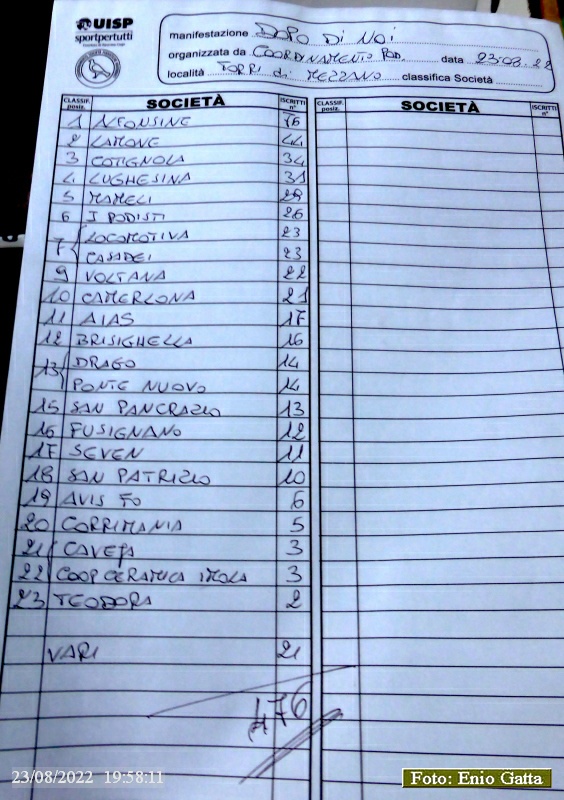 UISP
sportpertutti
manifestazione DOPO DI NOI
organizzata da COORDINAMENTO POD. data 23.08.22
località TORRI di MEZZANO classifica Società
CLASSIF. posiz. SOCIETÀ ISCRITTI n° CLASSIF. posiz. SOCIETÀ ISCRITTI n°
1 ALFONSINE 76
2 LAMONE 44
3 COTIGNOLA 34
4 LUGHESINA 31
5 MAMELI 29
6 I PODISTI 26
7 LOCOMOTIVA 23
CASADEI 23
9 VOLTANA 22
10 CAMERLONA 21
11 AIAS 17
12 BRISIGHELLA 16
13 DRAGO 14
PONTE NUOVO 14
15 SAN PANCRAZIO 13
16 FUSIGNANO 12
17 SEVEN 11
18 SAN PATRIZIO 10
19 AVIS FO 6
20 CORRIMANIA 5
21 CAVEJA 3
22 COOP CERAMICA IMOLA 3
23 TEODORA 2
VARI 21
476
23/08/2022 19:58:11
Foto: Enio Gatta